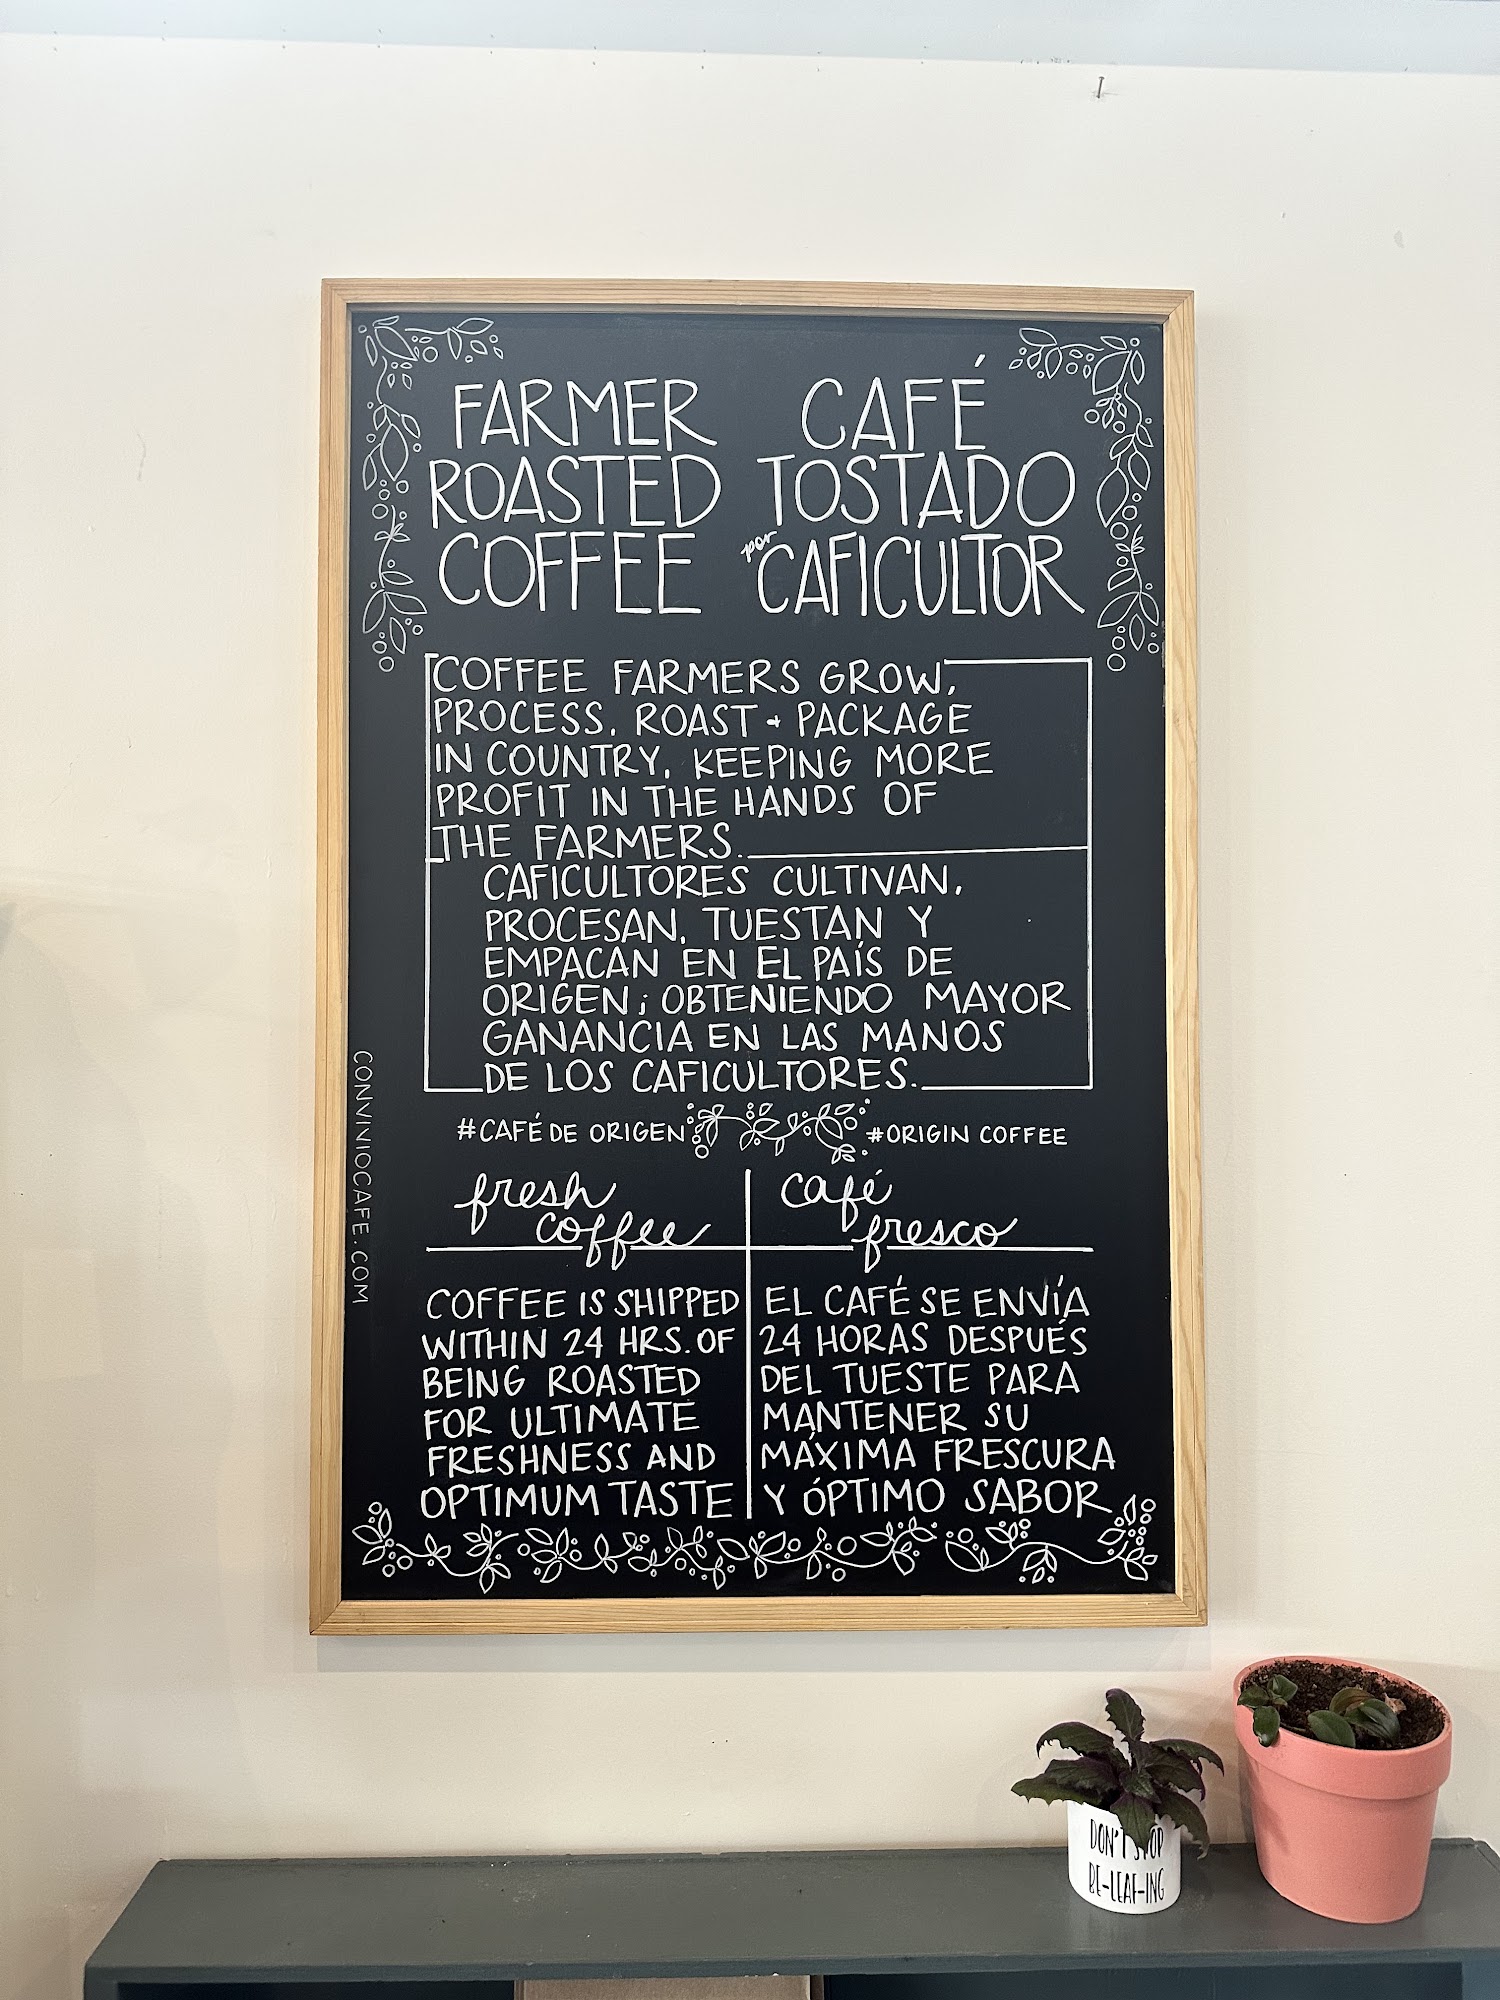 FARMER
ROASTED
COFFEE
CAFÉ
TOSTADO
por CAFICULTOR
COFFEE FARMERS GROW,
PROCESS, ROAST + PACKAGE
IN COUNTRY, KEEPING MORE
PROFIT IN THE HANDS OF
THE FARMERS.
CAFICULTORES CULTIVAN,
PROCESAN, TUESTAN Y
EMPACAN EN EL PAÍS DE
ORIGEN; OBTENIENDO MAYOR
GANANCIA EN LAS MANOS
DE LOS CAFICULTORES.
CONVIVIOCAFE.COM
#CAFÉ DE ORIGEN
#ORIGIN COFFEE
fresh
coffee
COFFEE IS SHIPPED
WITHIN 24 HRS. OF
BEING ROASTED
FOR ULTIMATE
FRESHNESS AND
OPTIMUM TASTE
café
fresco
EL CAFÉ SE ENVÍA
24 HORAS DESPUÉS
DEL TUESTE PARA
MANTENER SU
MÁXIMA FRESCURA
Y ÓPTIMO SABOR
DON'T STOP
BE-LEAF-ING